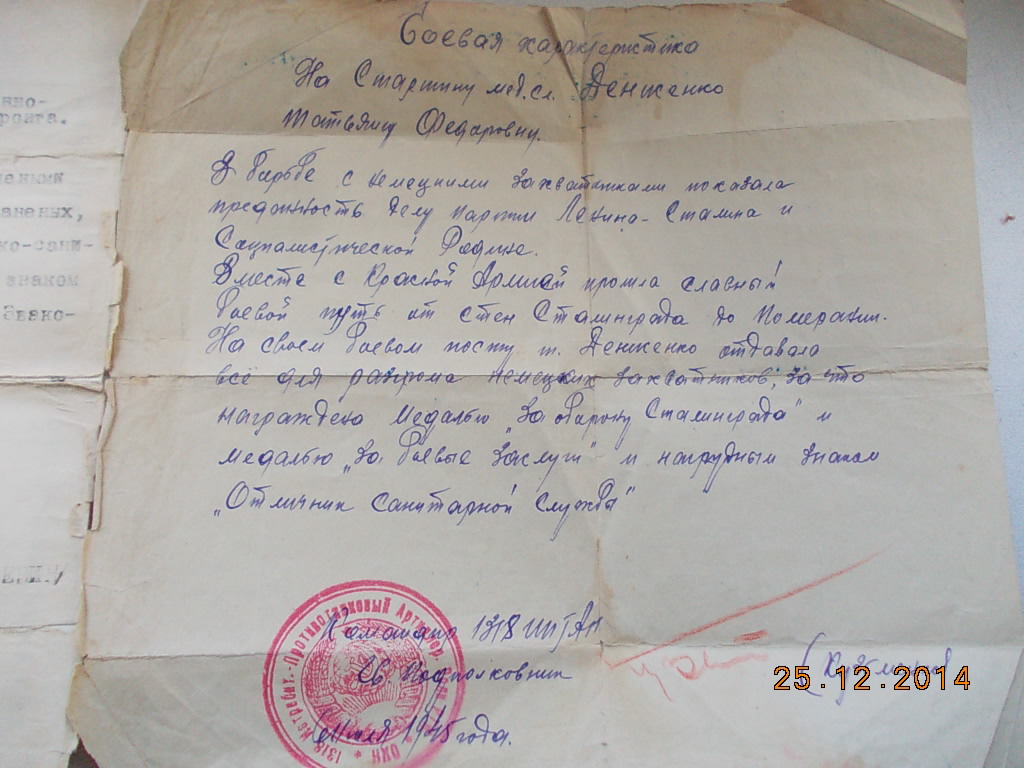 Боевая характеристика
На Старшину мед.сл. Денженко
Татьяну Федаровну.
В барьбе с немецкими захватчиками показала
преданность делу партии Ленина-Сталина и
Социалистической Родине.
Вместе с Красной Армией прошла славный
боевой путь от стен Сталинграда до Померании.
На своем боевом посту т. Денженко отдавала
всё для разгрома немецких захватчиков, за что
награждена Медалью „За оборону Сталинграда" и
медалью „За боевые заслуги" и нагрудным знаком
„Отличник санитарной службы"
Командир 1318 ИПТАП
Гв. Подполковник
1945 года.
1318 Истребит.-Противотанковый Артиллер.
вно-
ронта.
аненых,
ко-сани-
знаком
25.12.2014